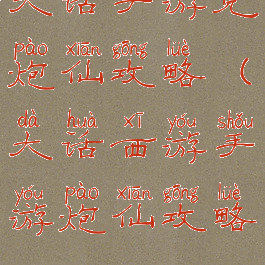 大话手游免
pào xiān gōng lüè
炮仙攻略（
dà huà xī yóu shǒu
大话西游手
yóu pào xiān gōng lüè
游炮仙攻略